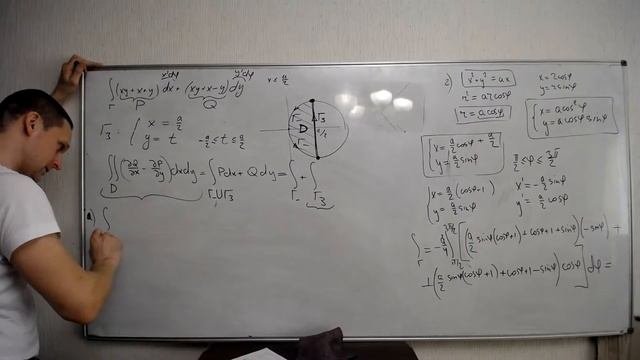 x'dφ y'dφ
∫_Γ (xy+x+y)dx + (xy+x-y)dy x ≤ a/2
P Q
Γ₃ : { x = a/2
y = t -a/2 ≤ t ≤ a/2
D Γ₃ a/2
∬_D (∂Q/∂x - ∂P/∂y) dxdy = ∫_{Γ∪Γ₃} Pdx + Qdy = ∫_Γ + ∫_{Γ₃}
∫
2) x²+y² = ax
r² = a r cosφ
r = a cosφ
x = r cosφ
y = r sinφ
{ x = a cos²φ
y = a cosφ sinφ
{ x = a/2 cosφ + a/2
y = a/2 sinφ
π/2 ≤ φ ≤ 3π/2
{ x = a/2 (cosφ+1)
y = a/2 sinφ
x' = -a/2 sinφ
y' = a/2 cosφ
[(a/2 sinφ(cosφ+1) + cosφ+1+sinφ)(-sinφ) +
+ (a/2 sinφ(cosφ+1) + cosφ+1-sinφ) cosφ] dφ =